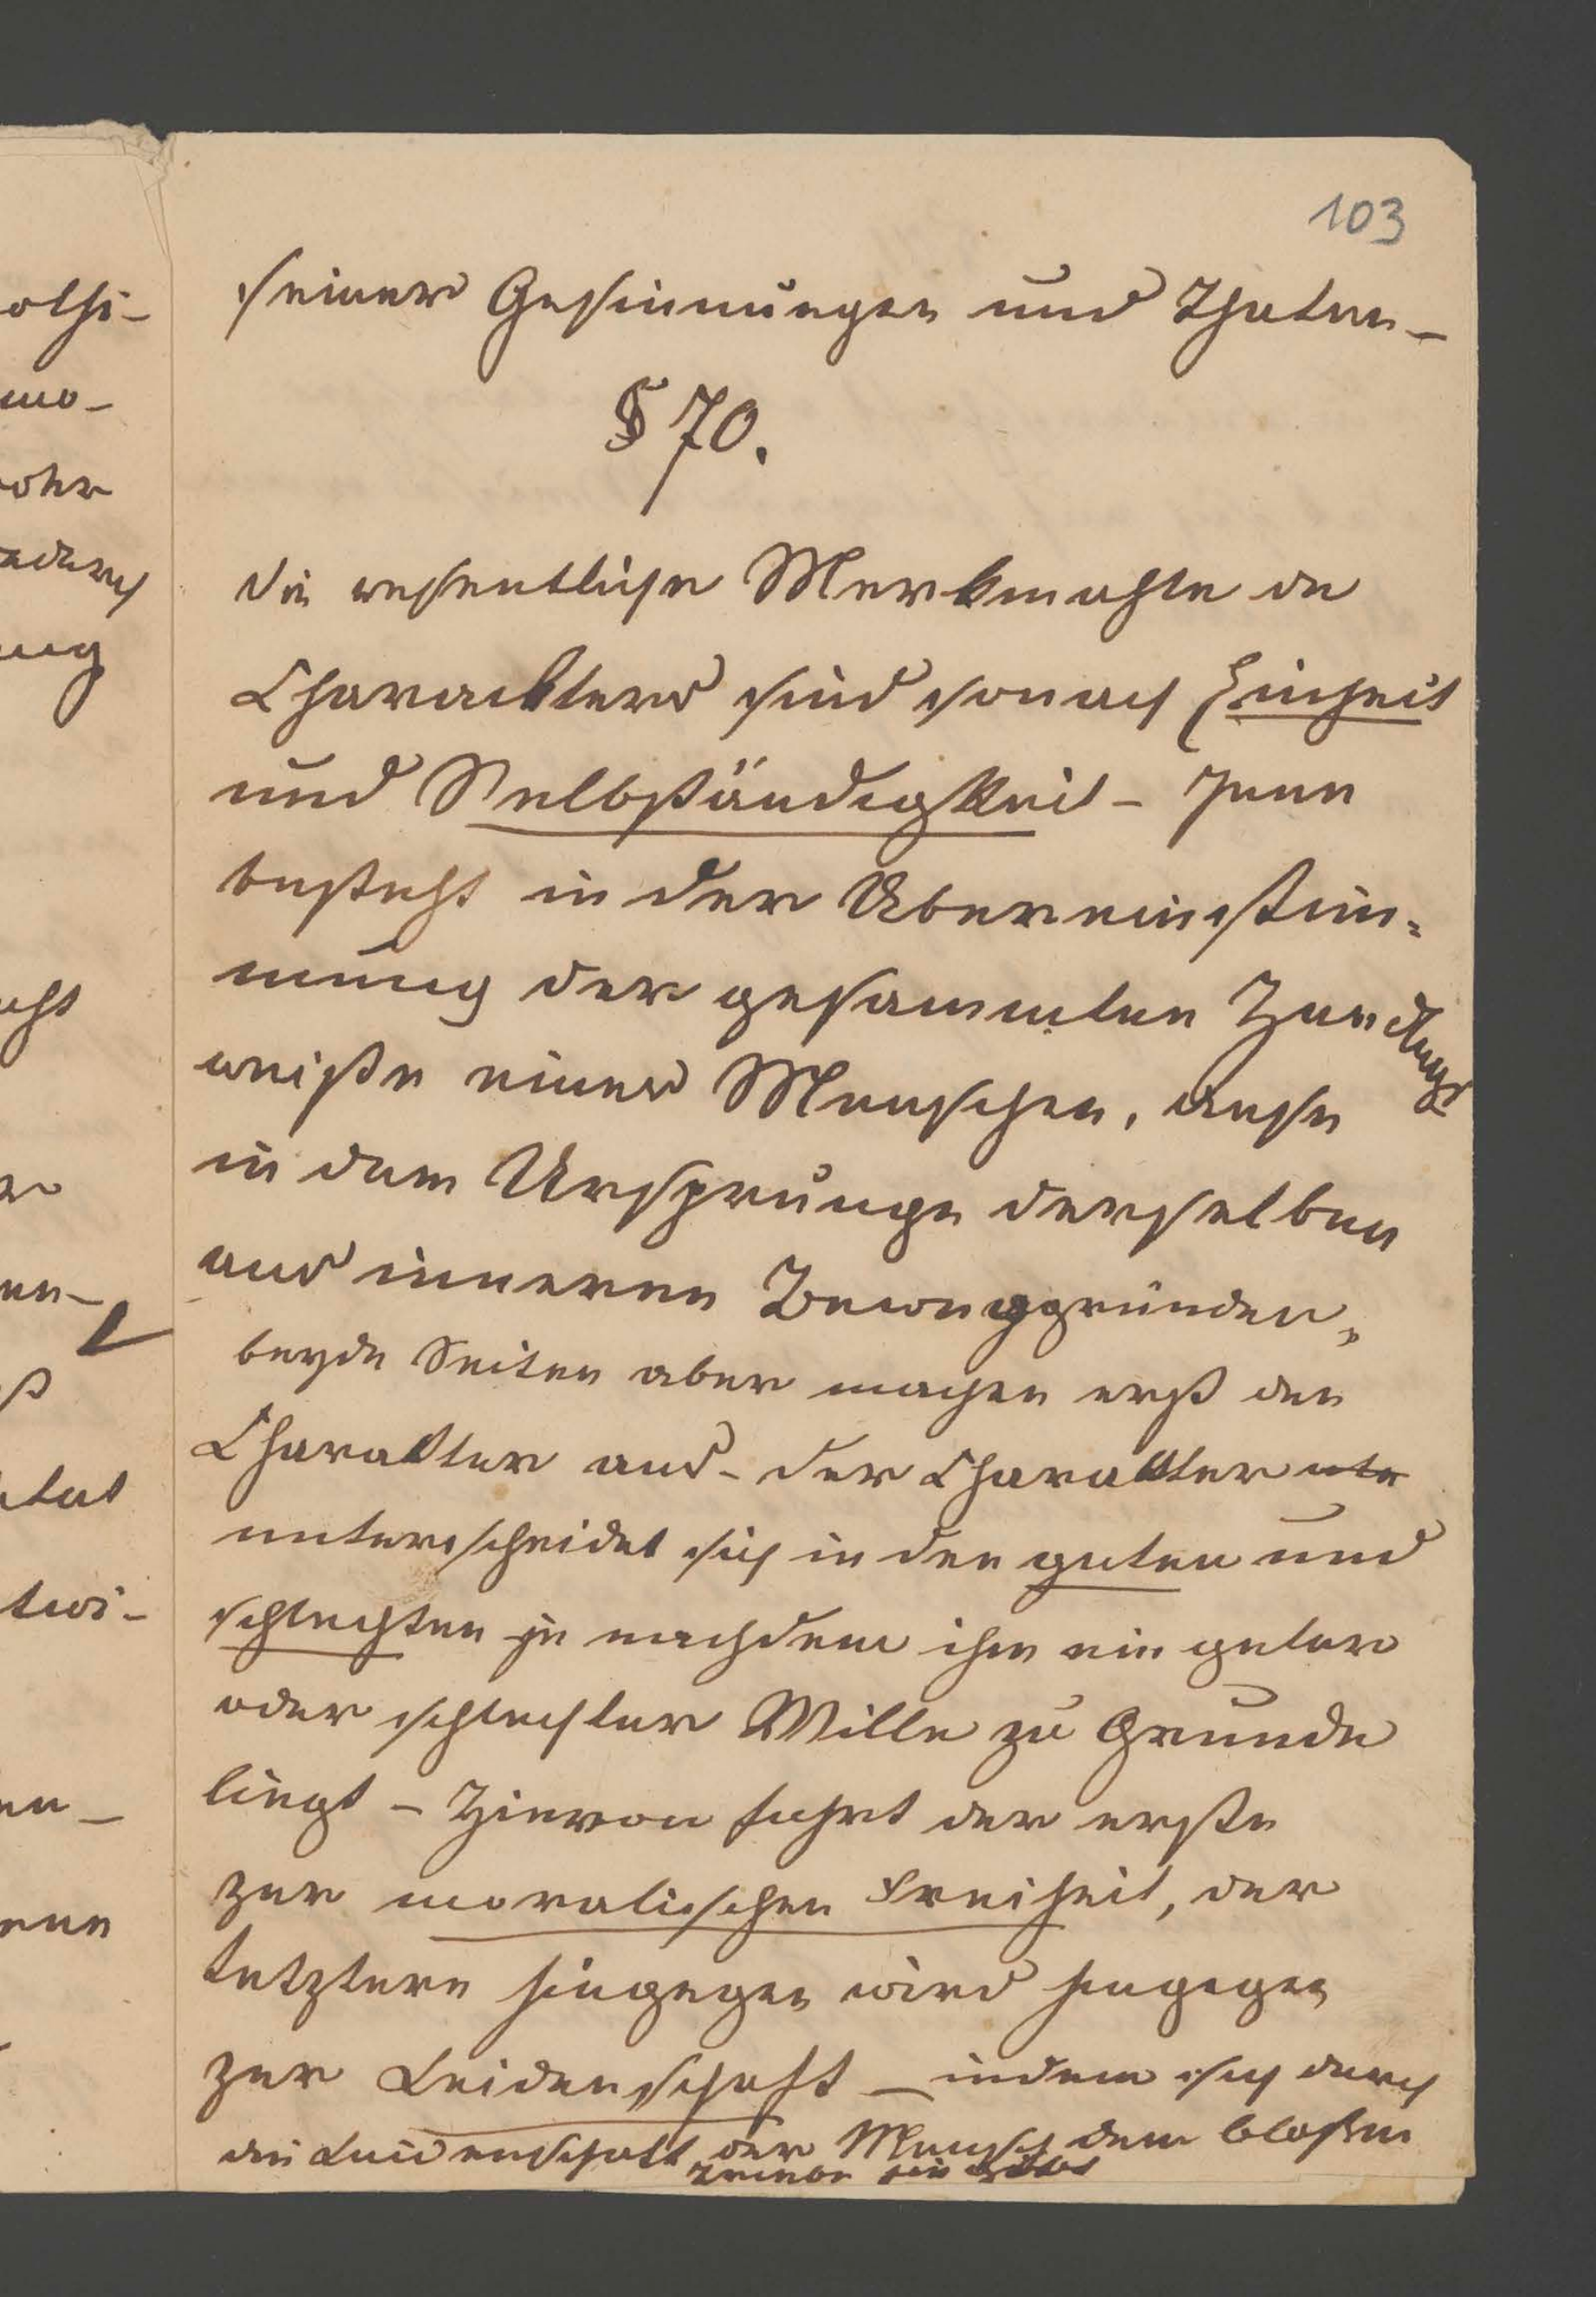 103
seiner Gesinnungen und Thaten –
§ 70.
Die wesentliche Merkmahle de
Charackters sind sonach Einheit
und Selbständigkeit – Jene
besteht in der Übereinstim=
mung der gesammten Handlungs
weiße eines Menschen, diese
in dem Ursprunge derselben
aus inneren Beweggründen,
beyde Seiten aber machen erst den
Charakter aus – der Charakter unte
unterscheidet sich in den guten und
schlechten je nachdem ihm ein guter
oder schlechter Wille zu Grunde
liegt – Hievon führt der erste
zur moralischen Freiheit, der
letztere hingegen wird hingegen
zur Leidenschaft – indem sich durch
die Leidenschaft der Mensch dem bloßen
Triebe hin
olhi–
mo–
ohr
ng
cht
en–
ß
twi–
en–